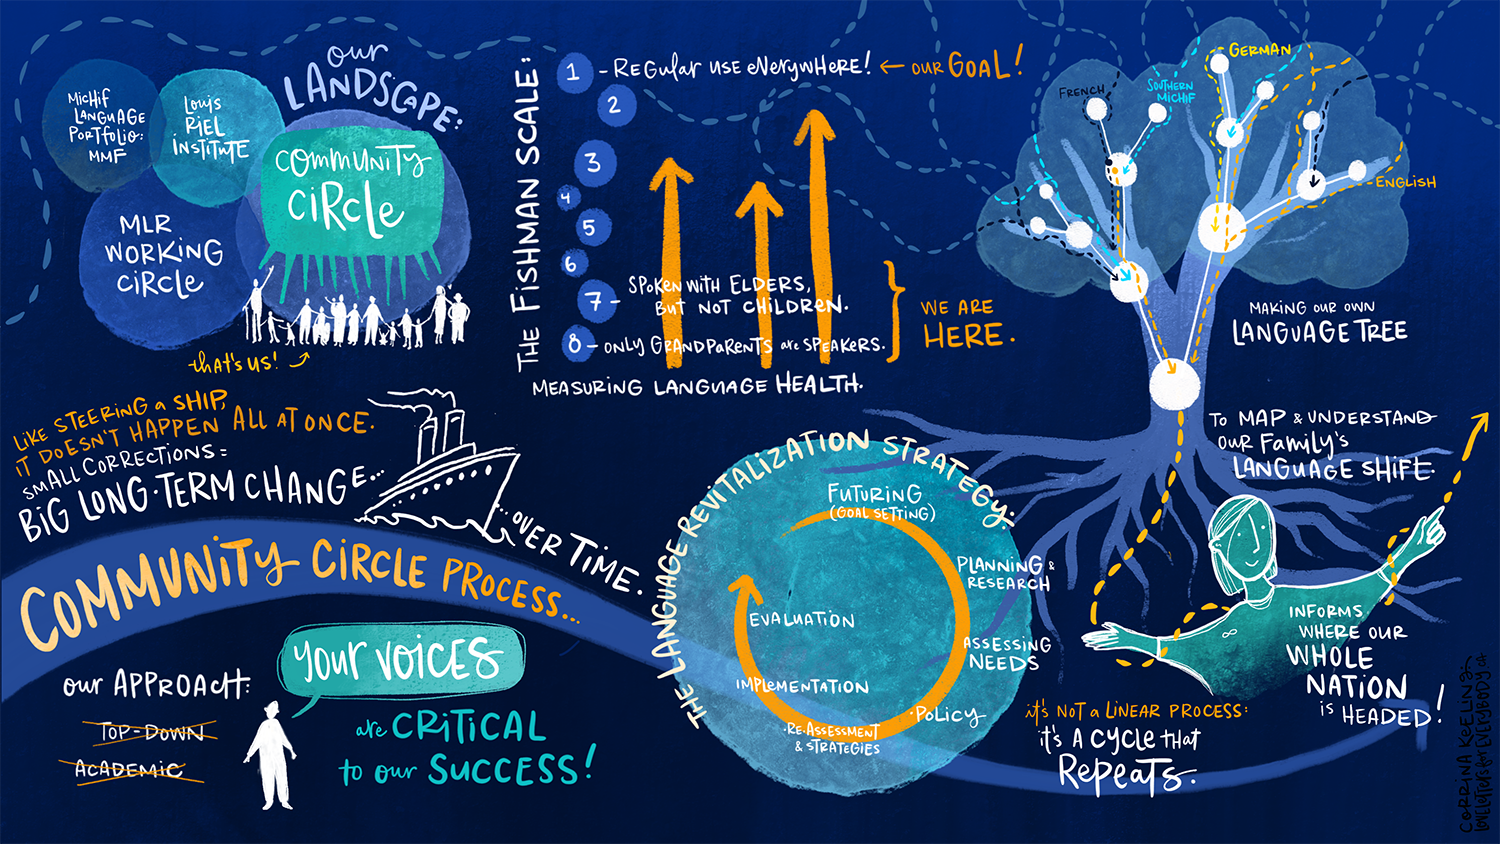 our
LANDSCAPE:
Michif
LANGUAGE
PORTFOLIO:
MMF
Louis
RiEL
iNSTiTUTE
COMMUNITY
CiRCLE
MLR
WORKiNG
CiRCLE
that's us!
LiKE STEERiNG a SHiP,
iT DOESN'T HAPPEN ALL AT ONCE.
SMALL CORRECTIONS =
BiG LONG-TERM CHANGE...
...OVER TiME.
THE FISHMAN SCALE:
1 - REGULAR USE EVERYWHERE! ← OUR GOAL!
2
3
4
5
6
7 - SPOKEN WITH ELDERS,
BUT NOT CHILDREN.
8 - ONLY GRANDPARENTS are SPEAKERS.
WE ARE
HERE.
MEASURING LANGUAGE HEALTH.
GERMAN
FRENCH
SOUTHERN
MICHIF
ENGLISH
MAKING OUR OWN
LANGUAGE TREE
TO MAP & UNDERSTAND
OUR FAMILY'S
LANGUAGE SHIFT.
INFORMS
WHERE OUR
WHOLE
NATION
is HEADED!
COMMUNITY CiRCLE PROCESS...
our APPROACH:
TOP-DOWN
ACADEMIC
your voices
are CRiTiCAL
to our SUCCESS!
THE LANGUAGE REVITALIZATION STRATEGY:
FUTURING
(GOAL SETTING)
PLANNING &
RESEARCH
ASSESSING
NEEDS
·POLICY
·RE-ASSESSMENT
& STRATEGIES
IMPLEMENTATION
EVALUATION
it's NOT a LINEAR PROCESS:
it's A CYCLE THAT
REPEATS.
CORRINA KEELING
LOVELETTERSFOREVERYBODY.CA